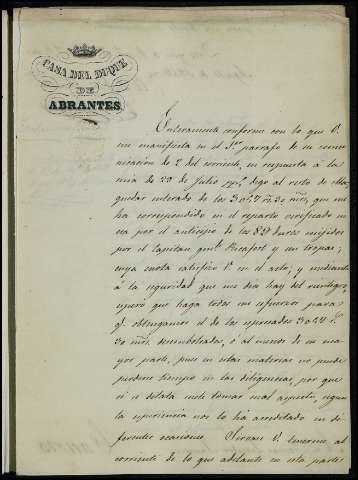 CASA DEL DUQUE
DE
ABRANTES.
Enteramente conforme con lo que V.
me manifiesta en el 1er parrafo de su comu-
nicacion de 2 del corriente, en respuesta á la
mia de 29 de Julio
quedar enterado de los 3042 rs. 30 mrs. que me
ha corresspondido en el reparto verificado en
esa por el anticipo de los duros exijidos
por el Capitan Genl. Recafort y su tropas;
cuya cuota satisfizo V. en el acto; y
á la seguridad que me dá hay del reintegro,
espero que haga todos sus esfuerzos para
q. obtengamos el de los espresados 3042 rs.
30 mrs. desembolsados, ó al menos de su ma-
yor parte, pues en estas materias no puede
perderse tiempo en las diligencias, por que
si se dilata suele tomar mal aspecto, segun
la esperiencia nos lo ha acreditado en di-
ferentes ocasiones. Sirvase V. tenerme al
corriente de lo que adelante en esta parte